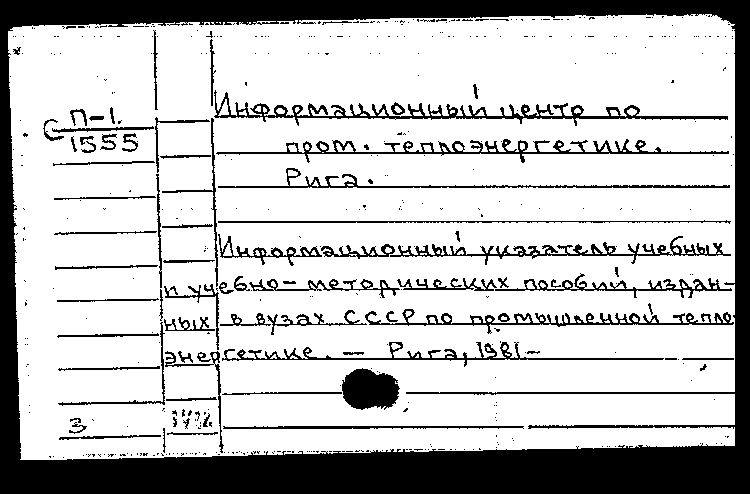 С П-1.
1555
Информационный центр по
пром. теплоэнергетике.
Рига.
Информационный указатель учебных
и учебно-методических пособий, издан-
ных в вузах СССР по промышленной тепло-
энергетике. — Рига, 1981-
3